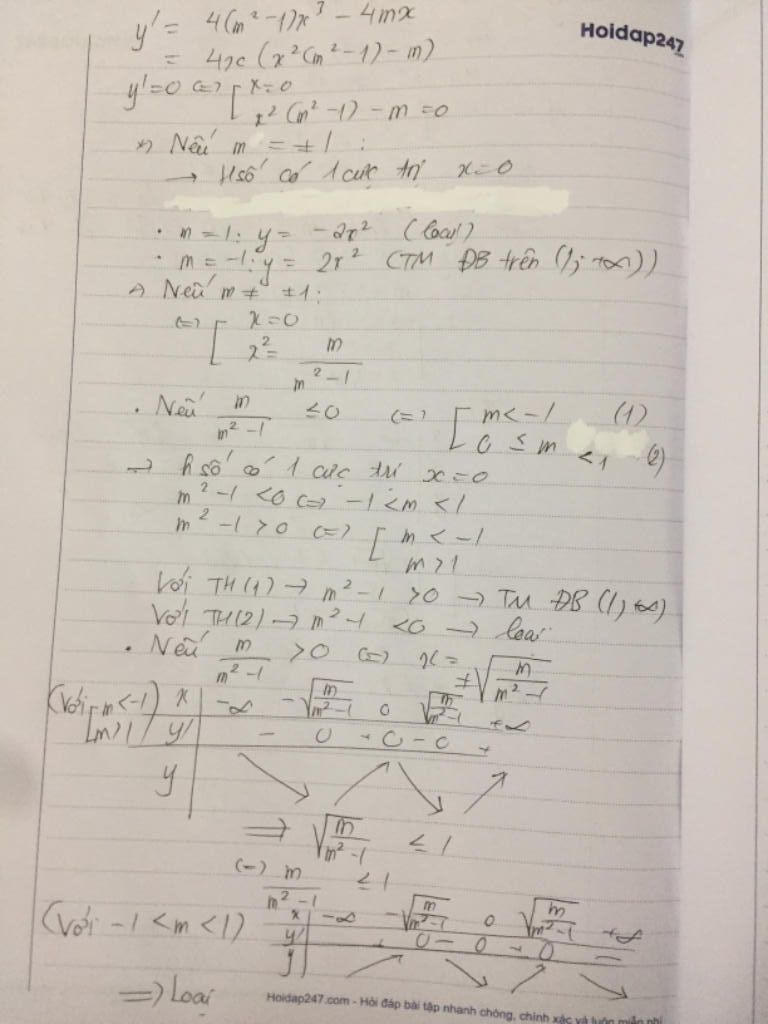 Hoidap247
y' = 4(m² - 1)x³ - 4mx
= 4x (x²(m² - 1) - m)
y' = 0 (=) [ x = 0
x² (m² - 1) - m = 0
*) Nếu m = ±1 :
→ Hsố có 1 cực trị x = 0
· m = 1 : y = -2x² (loại)
· m = -1 : y = 2x² (TM ĐB trên (1; +∞))
*) Nếu m ≠ ±1 :
(=) [ x = 0
x² = m/(m² - 1)
· Nếu m/(m² - 1) ≤ 0 (=) [ m < -1 (1)
0 ≤ m < 1 (2)
→ h số có 1 cực trị x = 0
m² - 1 < 0 (=) -1 < m < 1
m² - 1 > 0 (=) [ m < -1
m > 1
Với TH(1) → m² - 1 > 0 → TM ĐB (1; +∞)
Với TH(2) → m² - 1 < 0 → loại
· Nếu m/(m² - 1) > 0 (=) x = ±√(m/(m² - 1))
(Với [ m < -1 ) x | -∞ -√(m/(m² - 1)) 0 √(m/(m² - 1)) +∞
[ m > 1 y' | - 0 + 0 - 0 +
y | ↘ ↗ ↘ ↗
=> √(m/(m² - 1)) ≤ 1
(=) m/(m² - 1) ≤ 1
(Với -1 < m < 1) x | -∞ -√(m/(m² - 1)) 0 √(m/(m² - 1)) +∞
y' | + 0 - 0 + 0 -
y | ↗ ↘ ↗ ↘
=> Loại
Hoidap247.com - Hỏi đáp bài tập nhanh chóng, chính xác và luôn miễn phí